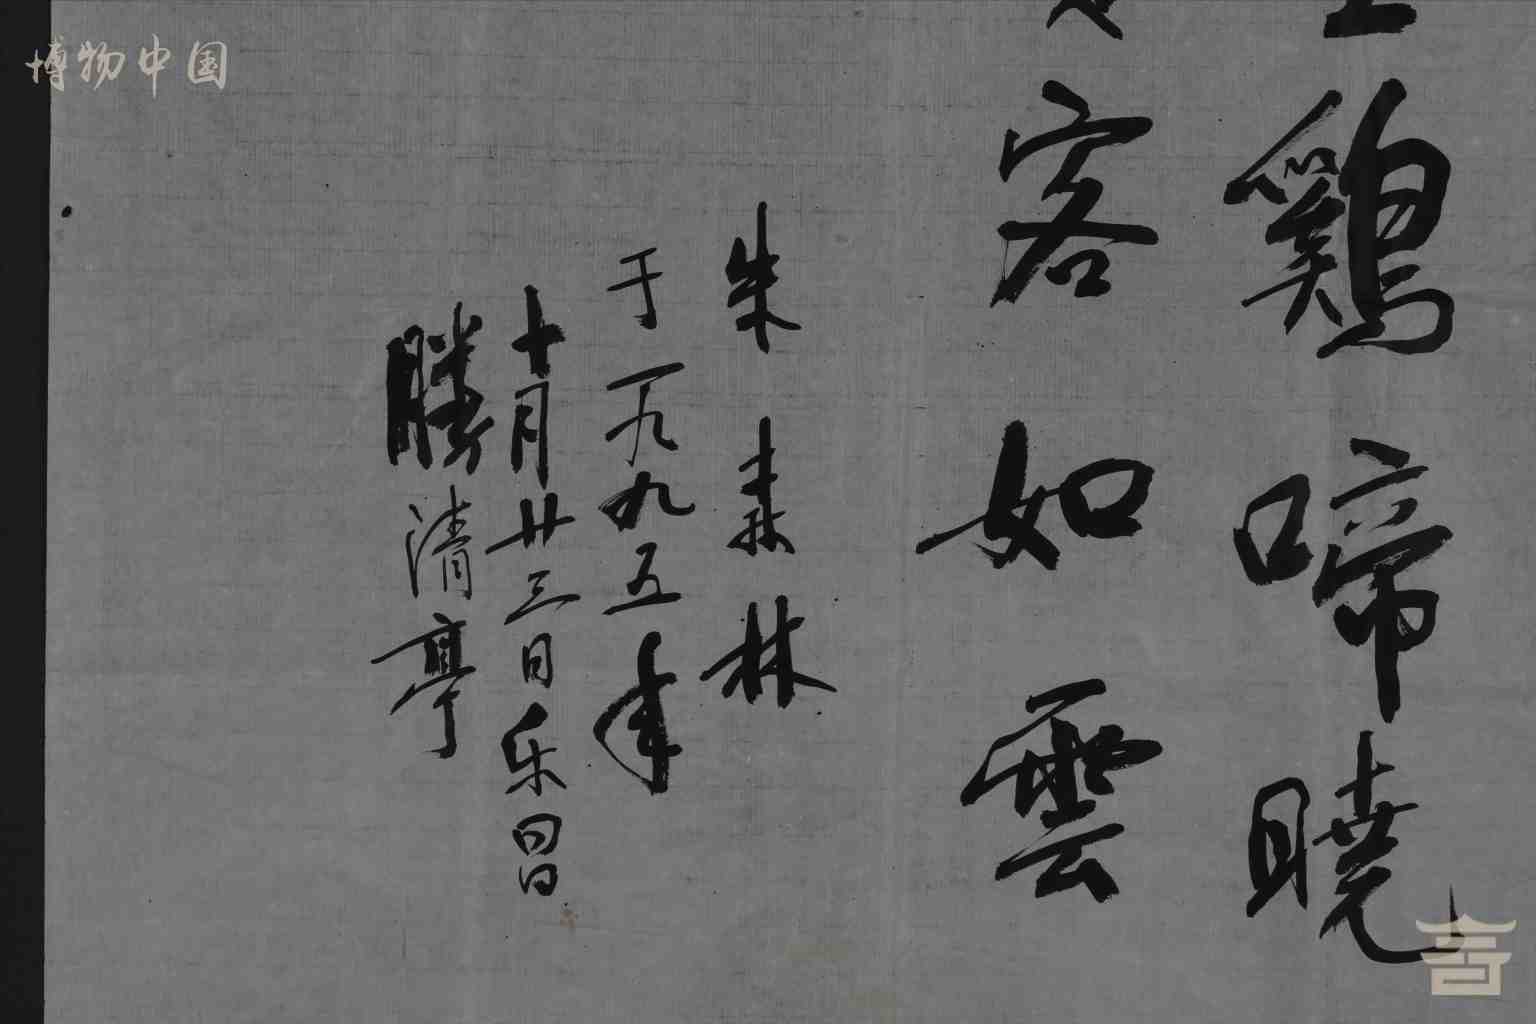 博物中国
鷄啼曉
客如雲
朱森林
于一九九五年
十月廿三日乐昌
勝清亭